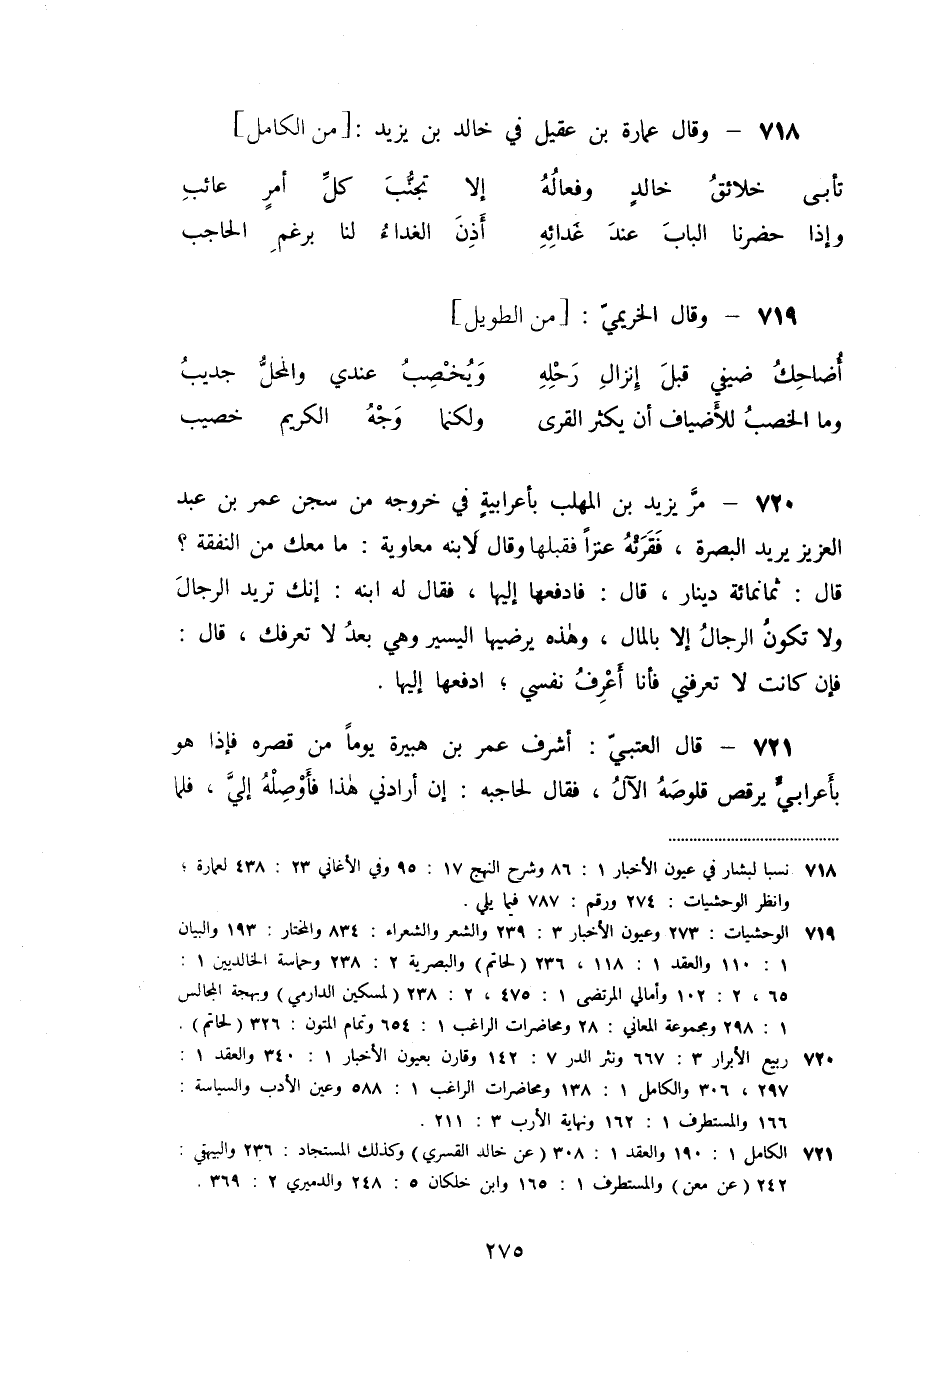 ٧١٨ – وقال عمارة بن عقيل في خالد بن يزيد : [من الكامل]
تأبى خلائقُ خالدٍ وفعالُهُ إلا تجنُّبَ كلِّ أمرٍ عائبِ
وإذا حضرنا البابَ عندَ غَدائِهِ أَذِنَ الغداءُ لنا برغمِ الحاجب
٧١٩ – وقال الخريميّ : [من الطويل]
أُضاحكُ ضيفي قبلَ إنزالِ رَحْلِهِ وَيُخْصِبُ عندي والمحلُّ جديبُ
وما الخصبُ للأَضياف أن يكثر القرى ولكنما وَجْهُ الكريم خصيب
٧٢٠ – مرَّ يزيد بن المهلب بأعرابيةٍ في خروجه من سجن عمر بن عبد
العزيز يريد البصرة ، فَقَرَتْهُ عنزاً فقبلها وقال لابنه معاوية : ما معك من النفقة ؟
قال : ثمانمائة دينار ، قال : فادفعها إليها ، فقال له ابنه : إنك تريد الرجالَ
ولا تكونُ الرجالُ إلا بالمال ، وهٰذه يرضيها اليسير وهي بعدُ لا تعرفك ، قال :
فإن كانت لا تعرفني فأنا أَعْرِفُ نفسي ؛ ادفعها إليها .
٧٢١ – قال العتبيّ : أشرف عمر بن هبيرة يوماً من قصره فإذا هو
بأَعرابيٍّ يرقص قلوصَهُ الآلُ ، فقال لحاجبه : إن أرادني هٰذا فأَوْصِلْهُ إليَّ ، فلما
٧١٨ نسبا لبشار في عيون الأخبار ١ : ٨٦ وشرح النهج ١٧ : ٩٥ وفي الأغاني ٢٣ : ٤٣٨ لعمارة ؛
وانظر الوحشيات : ٢٧٤ ورقم : ٧٨٧ فيما يلي .
٧١٩ الوحشيات : ٢٧٣ وعيون الأخبار ٣ : ٢٣٩ والشعر والشعراء : ٨٣٤ والمختار : ١٩٣ والبيان
١ : ١١٠ والعقد ١ : ١١٨ ، ٢٣٦ (لحاتم) والبصرية ٢ : ٢٣٨ وحماسة الخالديين ١ :
٦٥ ، ٢ : ١٠٢ وأمالي المرتضى ١ : ٤٧٥ ، ٢ : ٢٣٨ (لمسكين الدارمي) وبهجة المجالس
١ : ٢٩٨ ومجموعة المعاني : ٢٨ ومحاضرات الراغب ١ : ٦٥٤ وتمام المتون : ٣٢٦ (لحاتم) .
٧٢٠ ربيع الأبرار ٣ : ٦٦٧ ونثر الدر ٧ : ١٤٢ وقارن بعيون الأخبار ١ : ٣٤٠ والعقد ١ :
٢٩٧ ، ٣٠٦ والكامل ١ : ١٣٨ ومحاضرات الراغب ١ : ٥٨٨ وعين الأدب والسياسة :
١٦٦ والمستطرف ١ : ١٦٢ ونهاية الأرب ٣ : ٢١١ .
٧٢١ الكامل ١ : ١٩٠ والعقد ١ : ٣٠٨ (عن خالد القسري) وكذلك المستجاد : ٢٣٦ والبيهقي :
٢٤٢ (عن معن) والمستطرف ١ : ١٦٥ وابن خلكان ٥ : ٢٤٨ والدميري ٢ : ٣٦٩ .
٢٧٥